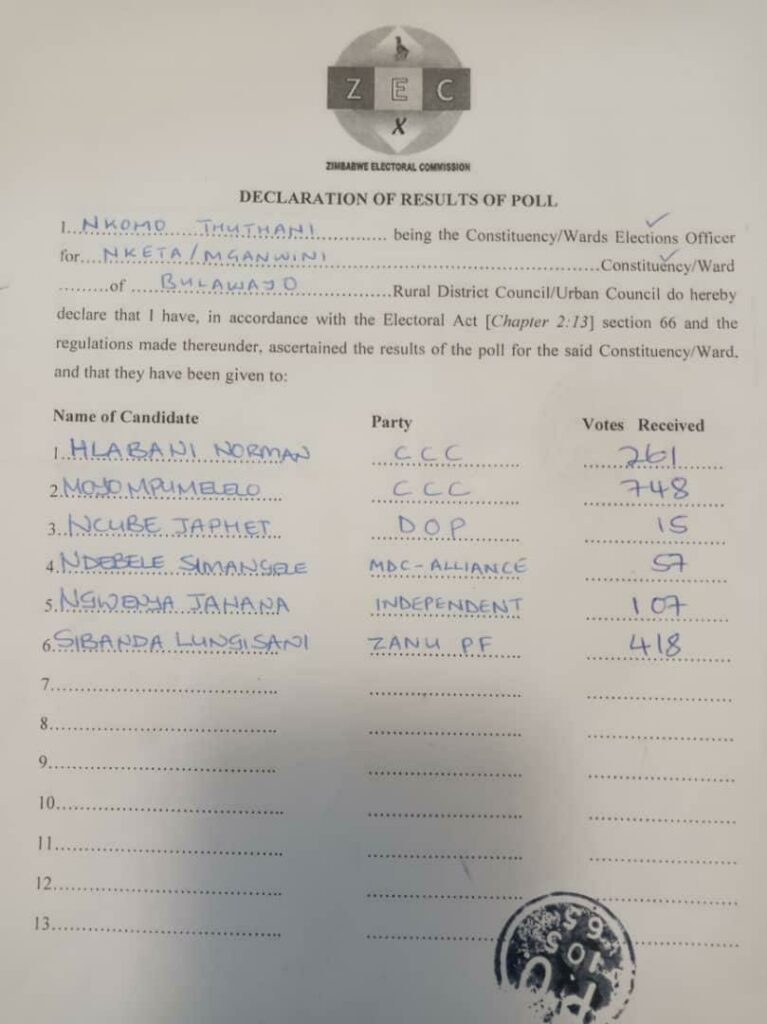 Z E C
X
ZIMBABWE ELECTORAL COMMISSION
DECLARATION OF RESULTS OF POLL
I..NKOMO THUTHANI.............. being the Constituency/Wards Elections Officer
for...NKETA/MGANWINI.......................................Constituency/Ward
.........of ....BULAWAYO..................Rural District Council/Urban Council do hereby
declare that I have, in accordance with the Electoral Act [Chapter 2:13] section 66 and the
regulations made thereunder, ascertained the results of the poll for the said Constituency/Ward.
and that they have been given to:
Name of Candidate Party Votes Received
1. HLABANI NORMAN CCC 261
2. MOYO MPUMELELO CCC 748
3. NCUBE JAPHET DOP 15
4. NDEBELE SIMANGELE MDC-ALLIANCE 57
5. NGWENYA JAHANA INDEPENDENT 107
6. SIBANDA LUNGISANI ZANU PF 418
7.
8.
9.
10.
11.
12.
13.